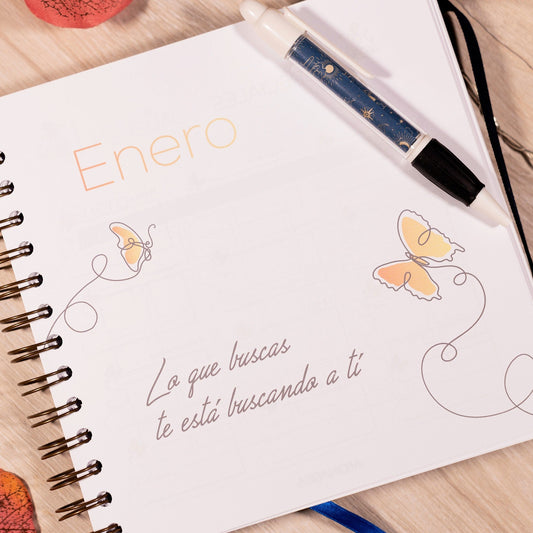 Enero
Lo que buscas
te está buscando a tí